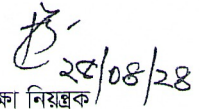 ২৫/০৪/২৪
ক্ষা নিয়ন্ত্রক